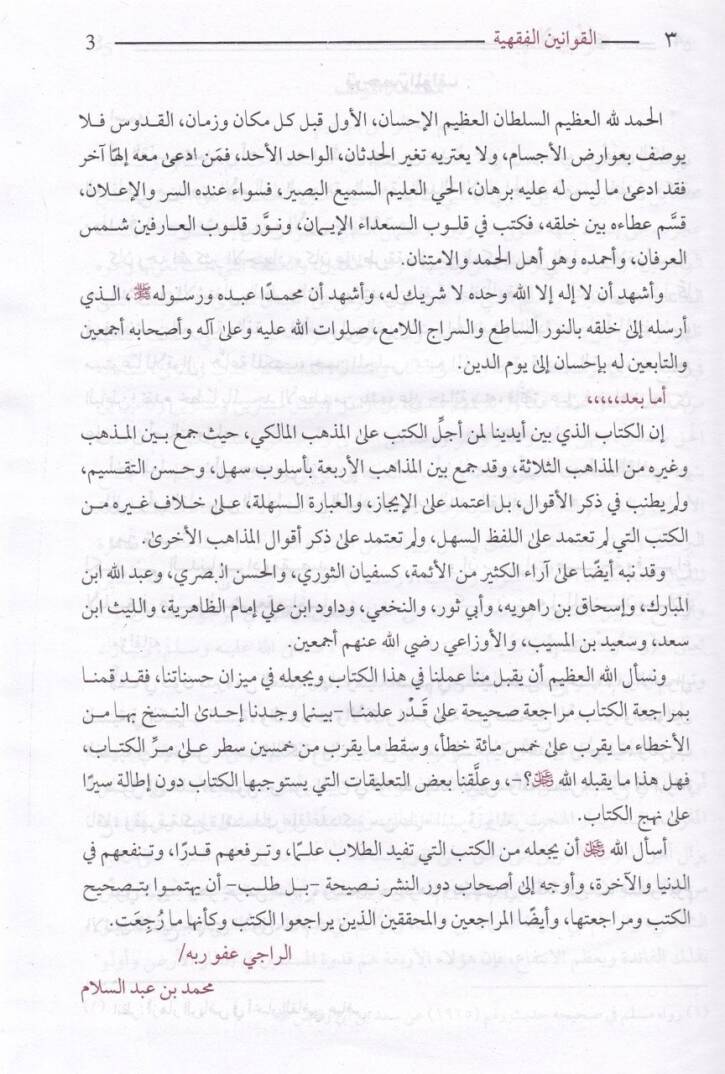 ٣ القوانين الفقهية 3
الحمد لله العظيم السلطان العظيم الإحسان، الأول قبل كل مكان وزمان، القدوس فلا
يوصف بعوارض الأجسام، ولا يعتريه تغير الحدثان، الواحد الأحد، فمَن ادعىٰ معه إلهًا آخر
فقد ادعىٰ ما ليس له عليه برهان، الحي العليم السميع البصير، فسواء عنده السر والإعلان،
قسَّم عطاءه بين خلقه، فكتب في قلوب السعداء الإيمان، ونوَّر قلوب العارفين شمس
العرفان، وأحمده وهو أهل الحمد والامتنان.
وأشهد أن لا إله إلا الله وحده لا شريك له، وأشهد أن محمدًا عبده ورسوله ﷺ، الذي
أرسله إلى خلقه بالنور الساطع والسراج اللامع، صلوات الله عليه وعلى آله وأصحابه أجمعين
والتابعين له بإحسان إلى يوم الدين.
أما بعد،،،،،
إن الكتاب الذي بين أيدينا لمن أجلِّ الكتب علىٰ المذهب المالكي، حيث جمع بين المذهب
وغيره من المذاهب الثلاثة، وقد جمع بين المذاهب الأربعة بأسلوب سهل، وحسن التقسيم،
ولم يطنب في ذكر الأقوال، بل اعتمد علىٰ الإيجاز، والعبارة السهلة، علىٰ خلاف غيره من
الكتب التي لم تعتمد علىٰ اللفظ السهل، ولم تعتمد علىٰ ذكر أقوال المذاهب الأخرىٰ.
وقد نبه أيضًا علىٰ آراء الكثير من الأئمة، كسفيان الثوري، والحسن البصري، وعبد الله ابن
المبارك، وإسحاق بن راهويه، وأبي ثور، والنخعي، وداود ابن علي إمام الظاهرية، والليث ابن
سعد، وسعيد بن المسيب، والأوزاعي رضي الله عنهم أجمعين.
ونسأل الله العظيم أن يقبل منا عملنا في هذا الكتاب ويجعله في ميزان حسناتنا، فقد قمنا
بمراجعة الكتاب مراجعة صحيحة علىٰ قَدْر علمنا -بينما وجدنا إحدىٰ النسخ بها من
الأخطاء ما يقرب علىٰ خمس مائة خطأ، وسقط ما يقرب من خمسين سطر علىٰ مرِّ الكتاب،
فهل هذا ما يقبله الله ؟-، وعلَّقنا بعض التعليقات التي يستوجبها الكتاب دون إطالة سيرًا
علىٰ نهج الكتاب.
أسأل الله أن يجعله من الكتب التي تفيد الطلاب علمًا، وترفعهم قدرًا، وتنفعهم في
الدنيا والآخرة، وأوجه إلى أصحاب دور النشر نصيحة -بل طلب- أن يهتموا بتصحيح
الكتب ومراجعتها، وأيضًا المراجعين والمحققين الذين يراجعوا الكتب وكأنها ما رُجِعَت.
الراجي عفو ربه/
محمد بن عبد السلام